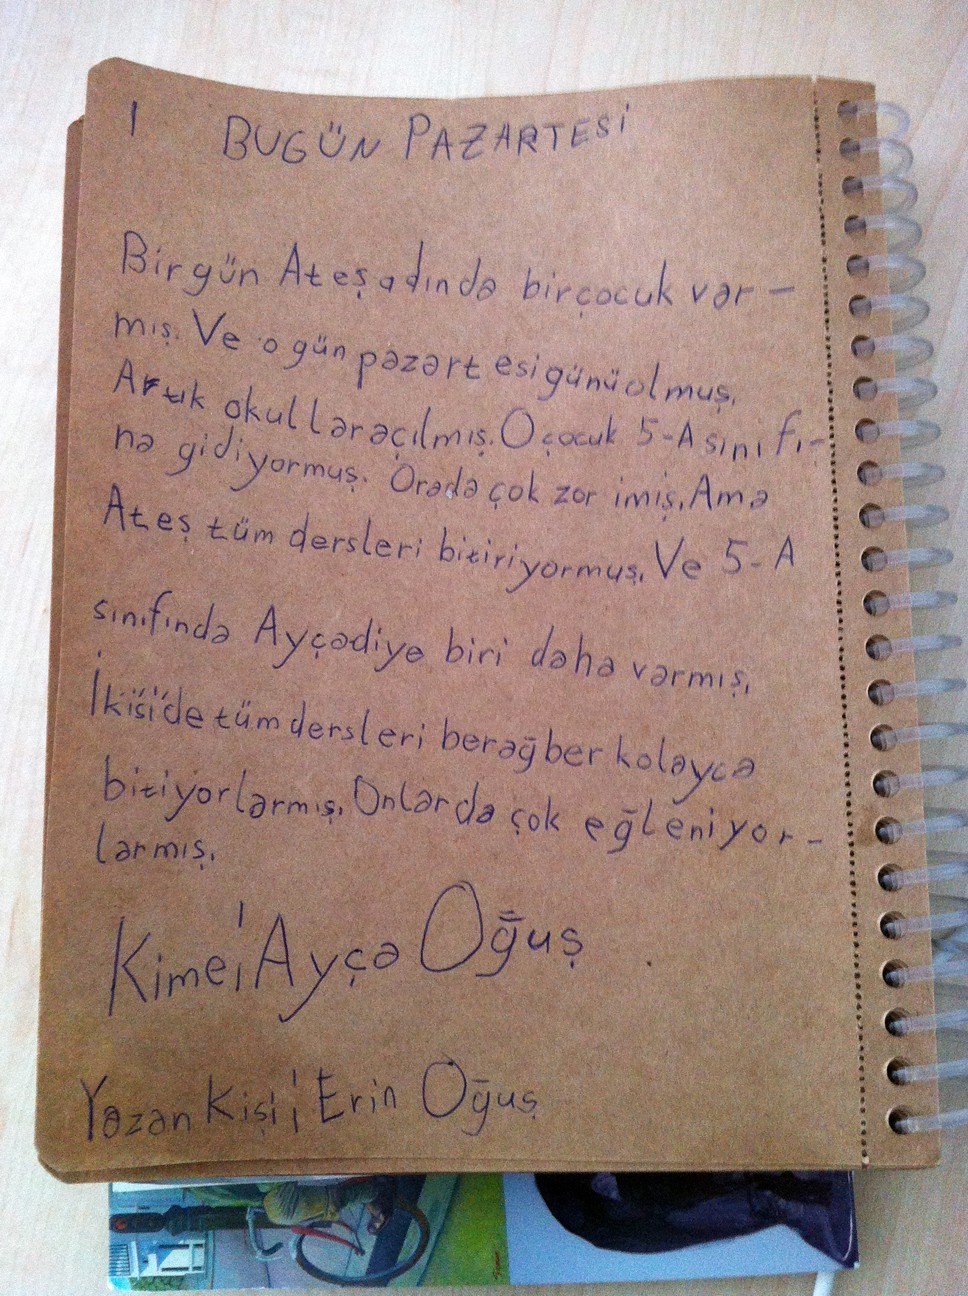 1 BUGÜN PAZARTESİ
Birgün Ateş adında bir çocuk var-
mış. Ve o gün pazartesi günü olmuş.
Artık okullar açılmış. O çocuk 5-A sınıfı-
na gidiyormuş. Orada çok zor imiş. Ama
Ateş tüm dersleri bitiriyormuş. Ve 5-A
sınıfında Ayça diye biri daha varmış.
İkisi'de tüm dersleri berağber kolayca
bitiyorlarmış. Onlar da çok eğleniyor-
larmış.
Kime¡ Ayça Oğuş
Yazan Kişi¡ Erin Oğuş